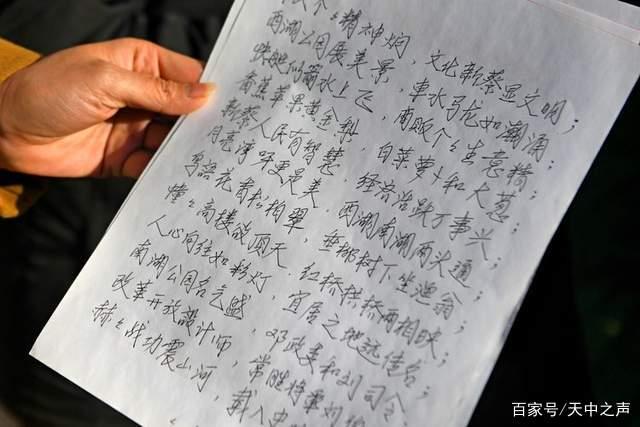 个々精神炯，文化新蔡显文明；
西湖公园展美景，车水马龙如潮涌；
快艇似箭水上飞，商贩个々生意精；
香蕉苹果黄金梨，白菜萝卜和大葱；
新蔡人民有智慧，经济活跃万事兴；
月亮湾畔更是美，西湖南湖两头通；
花香松柏翠，垂柳树下坐渔翁；
幢々高楼欲顶天，红桥栈桥两相映；
人心向往如彩灯，宜居之地远传名；
南湖公园名气盛，邓政委和刘司令；
改革开放設计师，常胜将軍刘伯
赫々战功震山河，载入史
百家号/天中之声